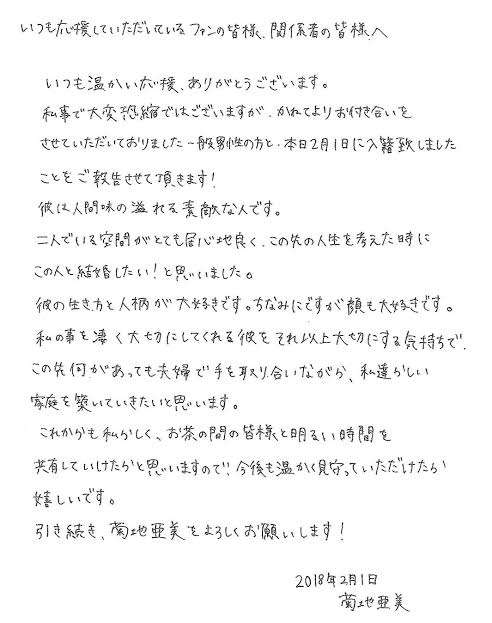 いつも応援していただいているファンの皆様、関係者の皆様へ
いつも温かい応援、ありがとうございます。
私事で大変恐縮ではございますが、かねてよりお付き合いを
させていただいておりました一般男性の方と、本日2月1日に入籍致しました
ことをご報告させて頂きます!
彼は人間味の溢れる素敵な人です。
二人でいる空間がとても居心地良く、この先の人生を考えた時に
この人と結婚したい!と思いました。
彼の生き方と人柄が大好きです。ちなみにですが顔も大好きです。
私の事を凄く大切にしてくれる彼をそれ以上大切にする気持ちで、
この先何があっても夫婦で手を取り合いながら、私達らしい
家庭を築いていきたいと思います。
これからも私らしく、お茶の間の皆様と明るい時間を
共有していけたらと思いますので、今後も温かく見守っていただけたら
嬉しいです。
引き続き、菊地亜美をよろしくお願いします!
2018年2月1日
菊地亜美